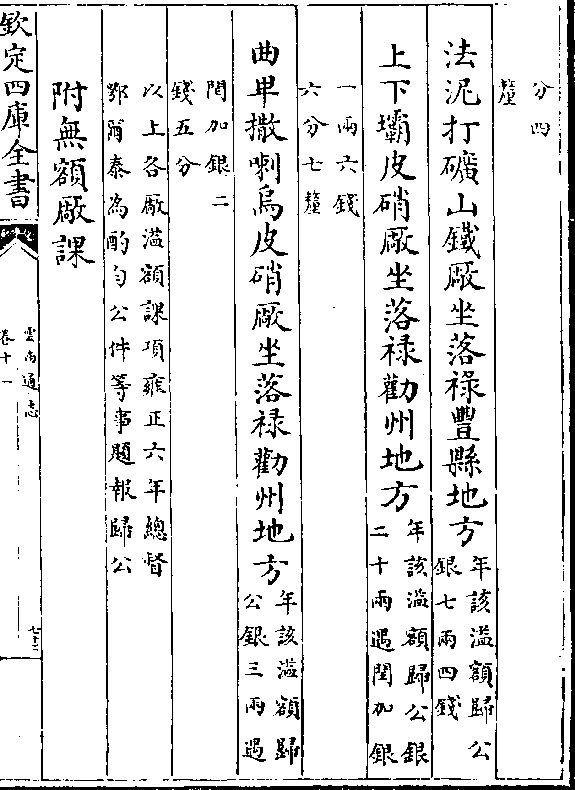 分四
釐
法泥打礦山鐵厰坐落祿豐縣地方年該溢額歸公
銀七兩四錢
上下壩皮硝厰坐落祿勸州地方年該溢額歸公銀
二十兩遇閏加銀
一兩六錢
六分七釐
曲甲撒喇烏皮硝厰坐落祿勸州地方年該溢額歸
公銀三兩遇
閏加銀二
錢五分
以上各厰溢額課項雍正六年總督
鄂爾泰為酌勻公件等事題報歸公
附無額厰課
欽定四庫全書
雲南通志
卷十一